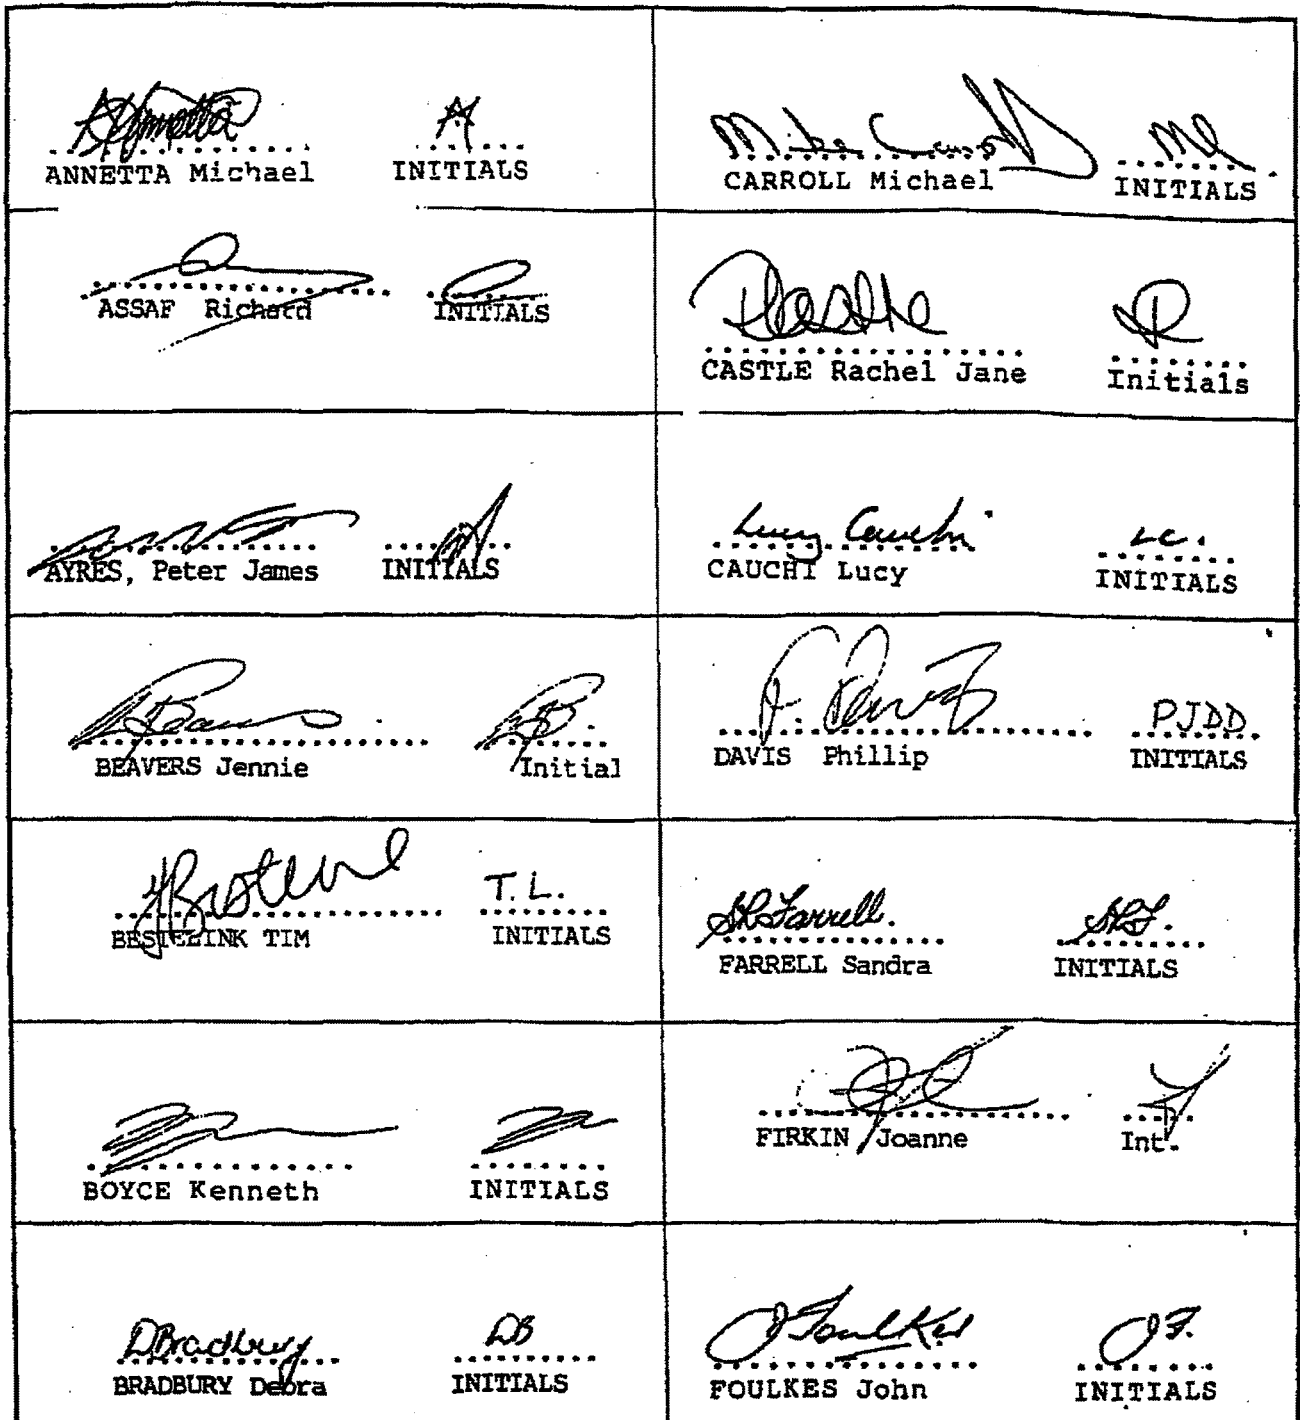 ANNETTA Michael INITIALS
Mike Carroll
CARROLL Michael INITIALS
ASSAF Richard INITIALS
CASTLE Rachel Jane Initials
AYRES, Peter James INITIALS
Lucy Cauchi LC.
CAUCHI Lucy INITIALS
BEAVERS Jennie Initial
P. Davis PJDD
DAVIS Phillip INITIALS
T.L.
BESTEBINK TIM INITIALS
SRFarrell. SRF.
FARRELL Sandra INITIALS
BOYCE Kenneth INITIALS
FIRKIN Joanne Int.
DBradbury DB
BRADBURY Debra INITIALS
JFoulkes JF.
FOULKES John INITIALS